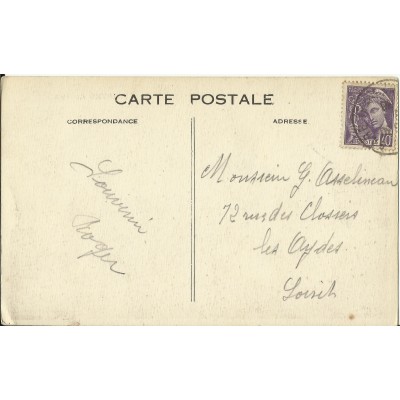 CARTE POSTALE
CORRESPONDANCE
ADRESSE
Souvenir
Roger
Monsieur G. Asselineau
72 rue des Closiers
les Aydes
Loiret
40